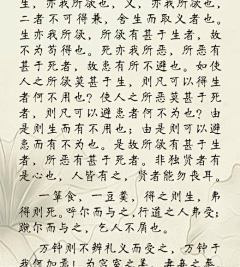 生，亦我所欲也，义，亦我所欲也，
二者不可得兼，舍生而取义者也。
生亦我所欲，所欲有甚于生者，故
不为苟得也。死亦我所恶，所恶有
甚于死者，故患有所不避也。如使
人之所欲莫甚于生，则凡可以得生
者何不用也？使人之所恶莫甚于死
者，则凡可以避患者何不为也？由
是则生而有不用也；由是则可以避
患而有不为也。是故所欲有甚于生
者，所恶有甚于死者。非独贤者有
是心也，人皆有之，贤者能勿丧耳。
一箪食，一豆羹，得之则生，弗
得则死。呼尔而与之，行道之人弗受；
蹴尔而与之，乞人不屑也。
万钟则不辨礼义而受之，万钟于
我何加焉！为宫室之美，妻妾之奉，